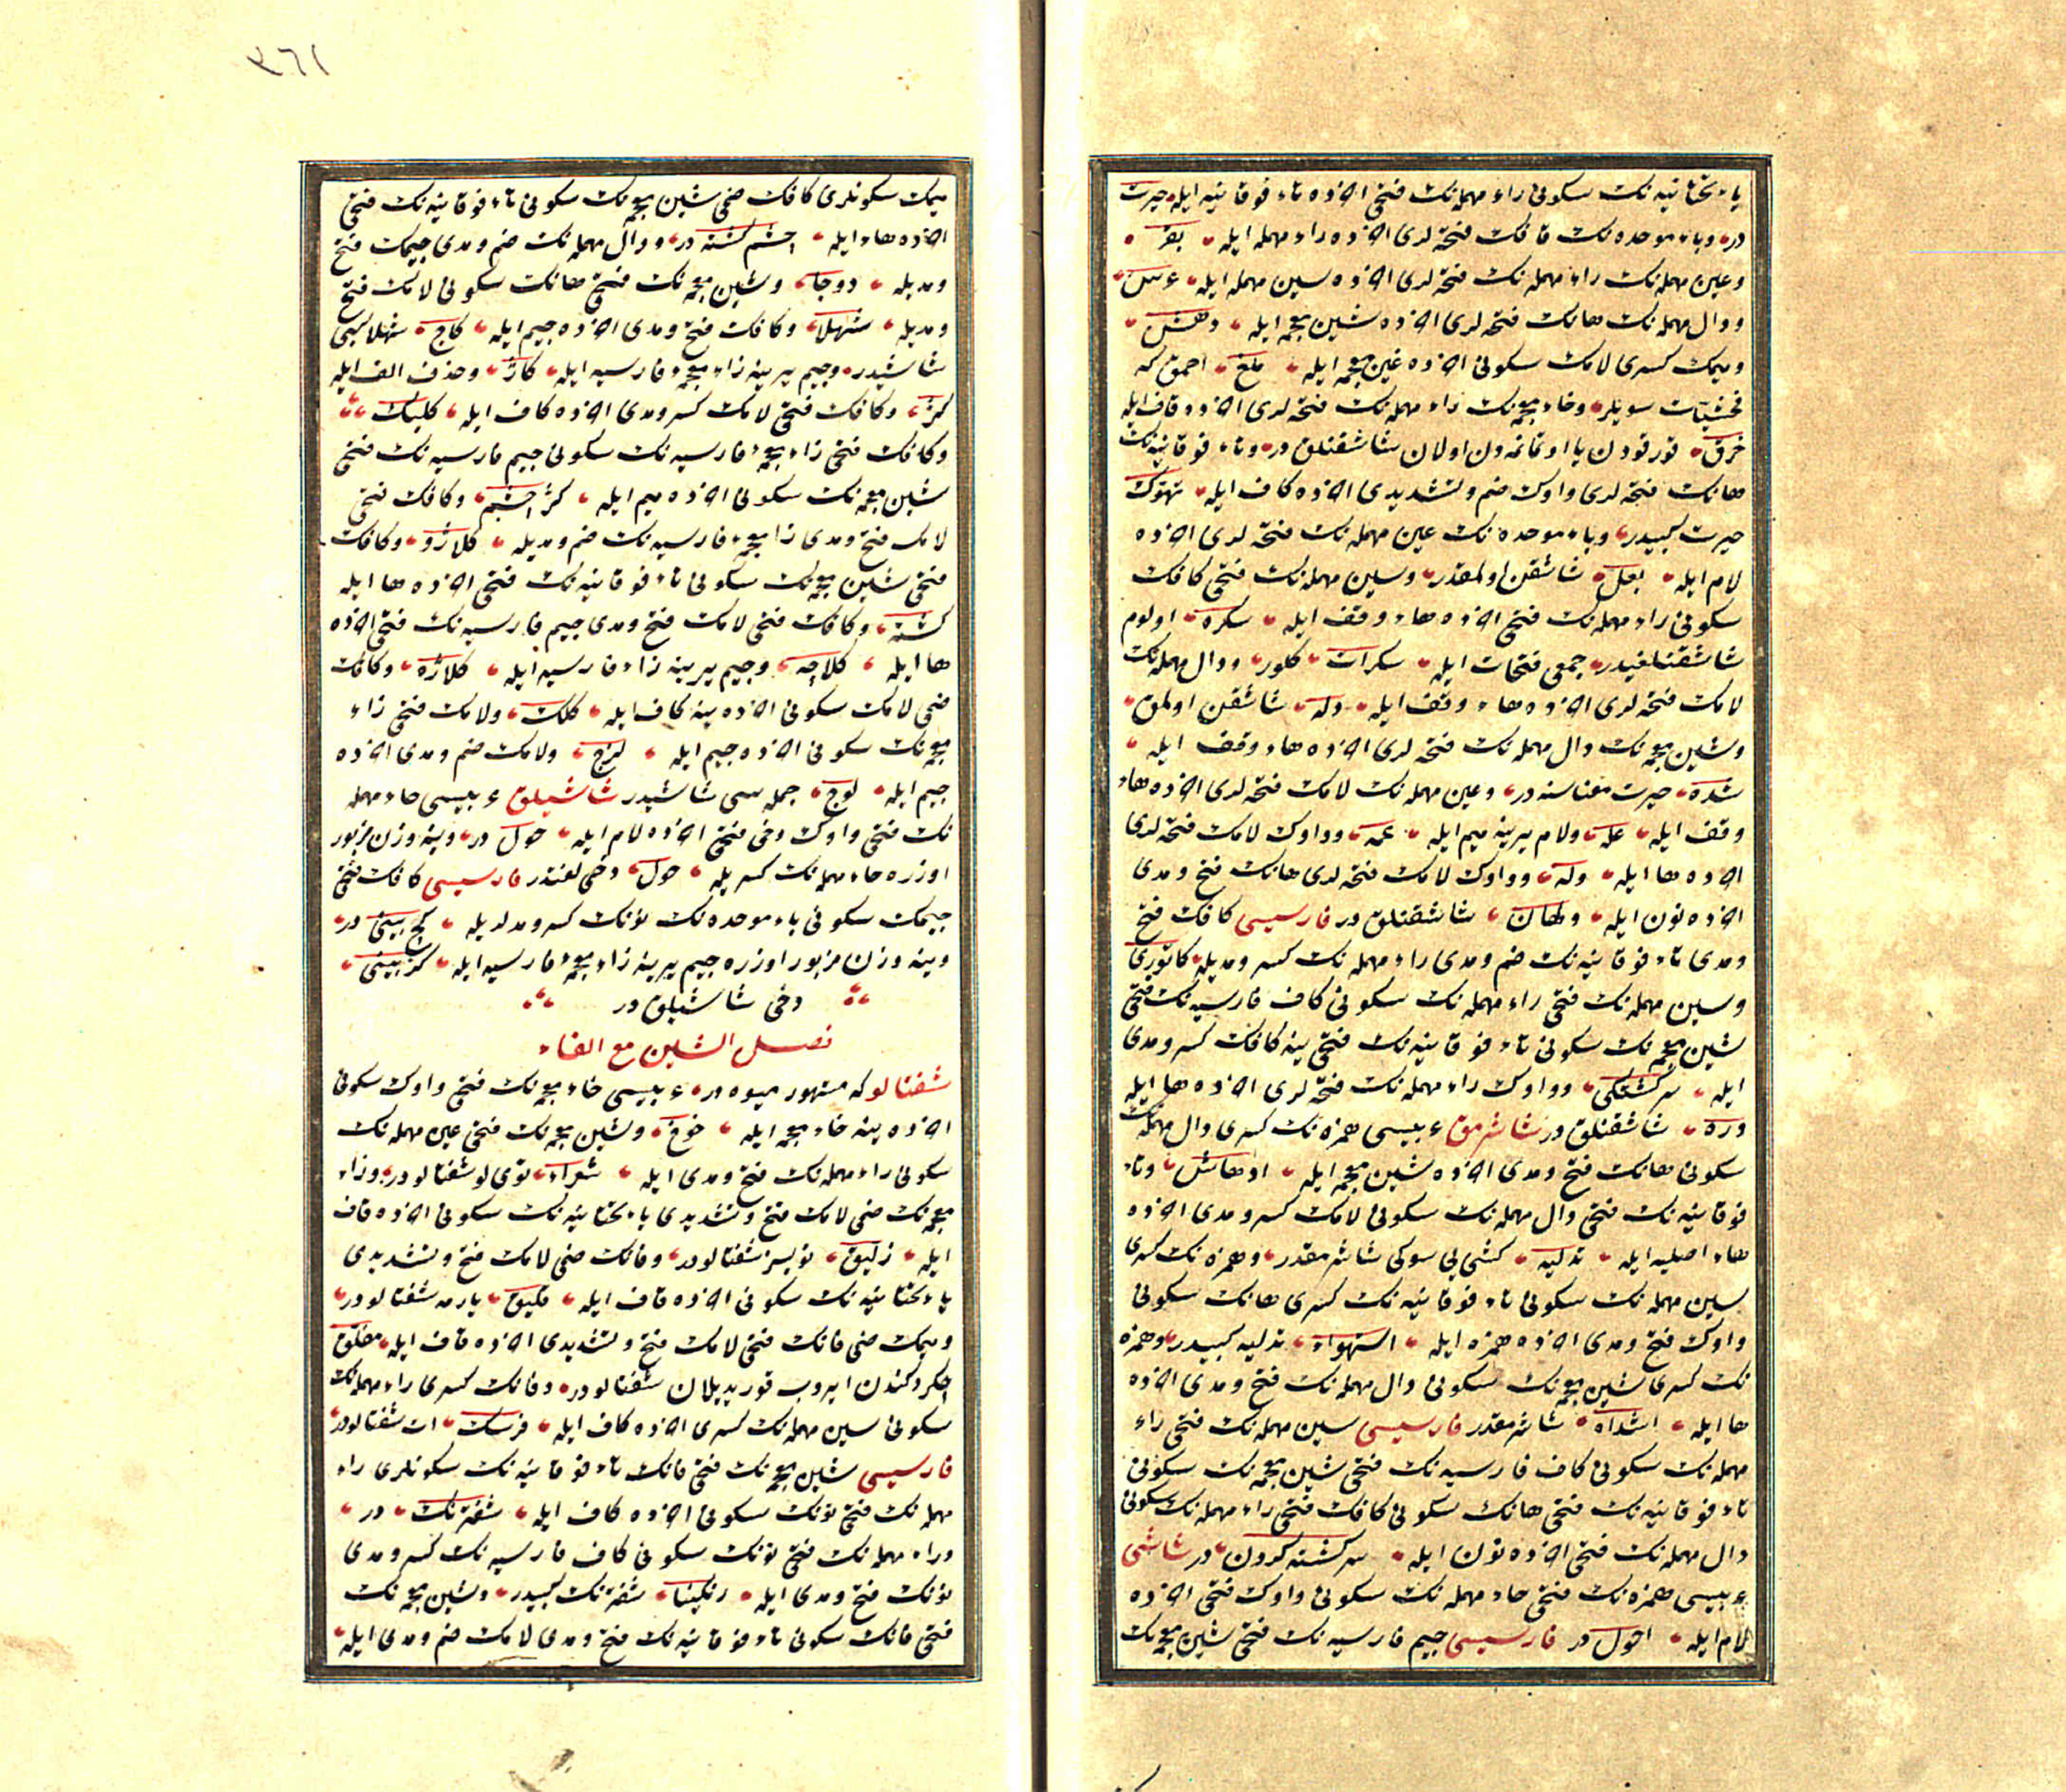 یاء تحتانیه نک سکونی راء مهمله نک فتحی اخرده تاء فوقانیه ایله حیرت
در وباء موحده نک قافک فتحه لری اخرده راء مهمله ایله بقر
وعین مهمله نک راء مهمله نک فتحه لری اخرده سین مهمله ایله عرس
ودال مهمله نک هانک فتحه لری اخرده شین معجمه ایله دهش
ومیمک کسری لامک سکونی اخرده غین معجمه ایله ملغ احمق که
فحشیات سویلر وخاء معجمه نک راء مهمله نک فتحه لری اخرده قاف ایله
خرق قورقودن یا اوتانمه دن اولان شاشقنلق در وتاء فوقانیه نک
هانک فتحه لری واوک ضم وتشدیدی اخرده کاف ایله تهوک
حیرت کبیدر وباء موحده نک عین مهمله نک فتحه لری اخرده
لام ایله بعل شاشقن اولمقدر وسین مهمله نک فتحی کافک
سکونی راء مهمله نک فتحی اخرده هاء وقف ایله سکره اولوم
شاشقنلغیدر جمعی فتحات ایله سکرات کلور ودال مهمله نک
لامک فتحه لری اخرده هاء وقف ایله دله شاشقن اولمق
وشین معجمه نک دال مهمله نک فتحه لری اخرده هاء وقف ایله
شده حیرت معناسنه در وعین مهمله نک لامک فتحه لری اخرده هاء
وقف ایله عله ولام یرینه میم ایله عمه وواوک لامک فتحه لری
اخرده ها ایله وله وواوک لامک فتحه لری هانک فتح ومدی
اخرده نون ایله ولهان شاشقنلق در فارسیسی کافک فتح
ومدی تاء فوقانیه نک ضم ومدی راء مهمله نک کسر ومدیله کاتوری
وسین مهمله نک فتحی راء مهمله نک سکونی کاف فارسیه نک فتحی
شین معجمه نک سکونی تاء فوقانیه نک فتحی ینه کافک کسر ومدی
ایله سرکشتکی وواوک راء مهمله نک فتحه لری اخرده ها ایله
وره شاشقنلق در شاشرمق عربیسی همزه نک کسری دال مهمله نک
سکونی هانک فتح ومدی اخرده شین معجمه ایله ادهاش وتاء
فوقانیه نک فتحی دال مهمله نک سکونی لامک کسر ومدی اخرده
هاء اصلیه ایله تدلیه کشی یی سوکی شاشرمقدر وهمزه نک کسری
سین مهمله نک سکونی تاء فوقانیه نک کسری هانک سکونی
واوک فتح ومدی اخرده همزه ایله استهواء تدلیه کبیدر وهمزه
نک کسری شین معجمه نک سکونی دال مهمله نک فتح ومدی اخرده
ها ایله اشداه شاشرمقدر فارسیسی سین مهمله نک فتحی راء
مهمله نک سکونی کاف فارسیه نک فتحی شین معجمه نک سکونی
تاء فوقانیه نک فتحی هانک سکونی کافک فتحی راء مهمله نک سکونی
دال مهمله نک فتحی اخرده نون ایله سرکشته کردن در شاشی
عربیسی همزه نک فتحی حاء مهمله نک سکونی واوک فتحی اخرده
لام ایله احول در فارسیسی جیم فارسیه نک فتحی شین معجمه نک
میمک سکونلری کافک ضمی شین معجمه نک سکونی تاء فوقانیه نک فتحی
اخرده هاء ایله چشم کشته در ودال مهمله نک ضم ومدی جیمک فتح
ومدیله دوجا وشین معجمه نک فتحی هانک سکونی لامک فتح
ومدیله شهلا وکافک فتح ومدی اخرده جیم ایله کاج شهلا کبی
شاشیدر وجیم یرینه زاء معجمهٔ فارسیه ایله کاژ وحذف الف ایله
کژ وکافک فتحی لامک کسر ومدی اخرده کاف ایله کلیک
وکافک فتحی زاء معجمهٔ فارسیه نک سکونی جیم فارسیه نک فتحی
شین معجمه نک سکونی اخرده میم ایله کژچشم وکافک فتحی
لامک فتح ومدی زا معجمهٔ فارسیه نک ضم ومدیله کلاژو وکافک
فتحی شین معجمه نک سکونی تاء فوقانیه نک فتحی اخرده ها ایله
کشته وکافک فتحی لامک فتح ومدی جیم فارسیه نک فتحی اخرده
ها ایله کلاچه وجیم یرینه زاء فارسیه ایله کلاژه وکافک
ضمی لامک سکونی اخرده ینه کاف ایله کلک ولامک فتحی زاء
معجمه نک سکونی اخرده جیم ایله لزج ولامک ضم ومدی اخرده
جیم ایله لوج جمله سی شاشیدر شاشیلق عربیسی حاء مهمله
نک فتحی واوک دخی فتحی اخرده لام ایله حول در وینه وزن مزبور
اوزره حاء مهمله نک کسریله حول دخی لغتدر فارسیسی کافک فتحی
جیمک سکونی باء موحده نک نونک کسر ومدلریله کج بینی در
وینه وزن مزبور اوزره جیم یرینه زاء معجمهٔ فارسیه ایله کژ بینی
دخی شاشیلق در
فصل الشین مع الفاء
شفتالو که مشهور میوه در عربیسی خاء معجمه نک فتحی واوک سکونی
اخرده ینه خاء معجمه ایله خوخ وشین معجمه نک فتحی عین مهمله نک
سکونی راء مهمله نک فتح ومدی ایله شعراء توی لو شفتالو در وزاء
معجمه نک ضمی لامک فتح وتشدیدی یاء تحتانیه نک سکونی اخرده قاف
ایله زلیق تویسز شفتالودر وفانک ضمی لامک فتح وتشدیدی
یاء تحتانیه نک سکونی اخرده قاف ایله فلیق یارمه شفتالودر
ومیمک ضمی فانک فتحی لامک فتح وتشدیدی اخرده قاف ایله مفلق
چکردکندن ایروب قوریدیلان شفتالودر وفانک کسری راء مهمله نک
سکونی سین مهمله نک کسری اخرده کاف ایله فرسک ات شفتالودر
فارسیسی شین معجمه نک فتحی فانک تاء فوقانیه نک سکونلری راء
مهمله نک فتحی نونک سکونی اخرده کاف ایله شفترنک در
وراء مهمله نک فتحی نونک سکونی کاف فارسیه نک کسر ومدی
نونک فتح ومدی ایله رنکینا شفترنک کبیدر وشین معجمه نک
فتحی فانک سکونی تاء فوقانیه نک فتح ومدی لامک ضم ومدی ایله